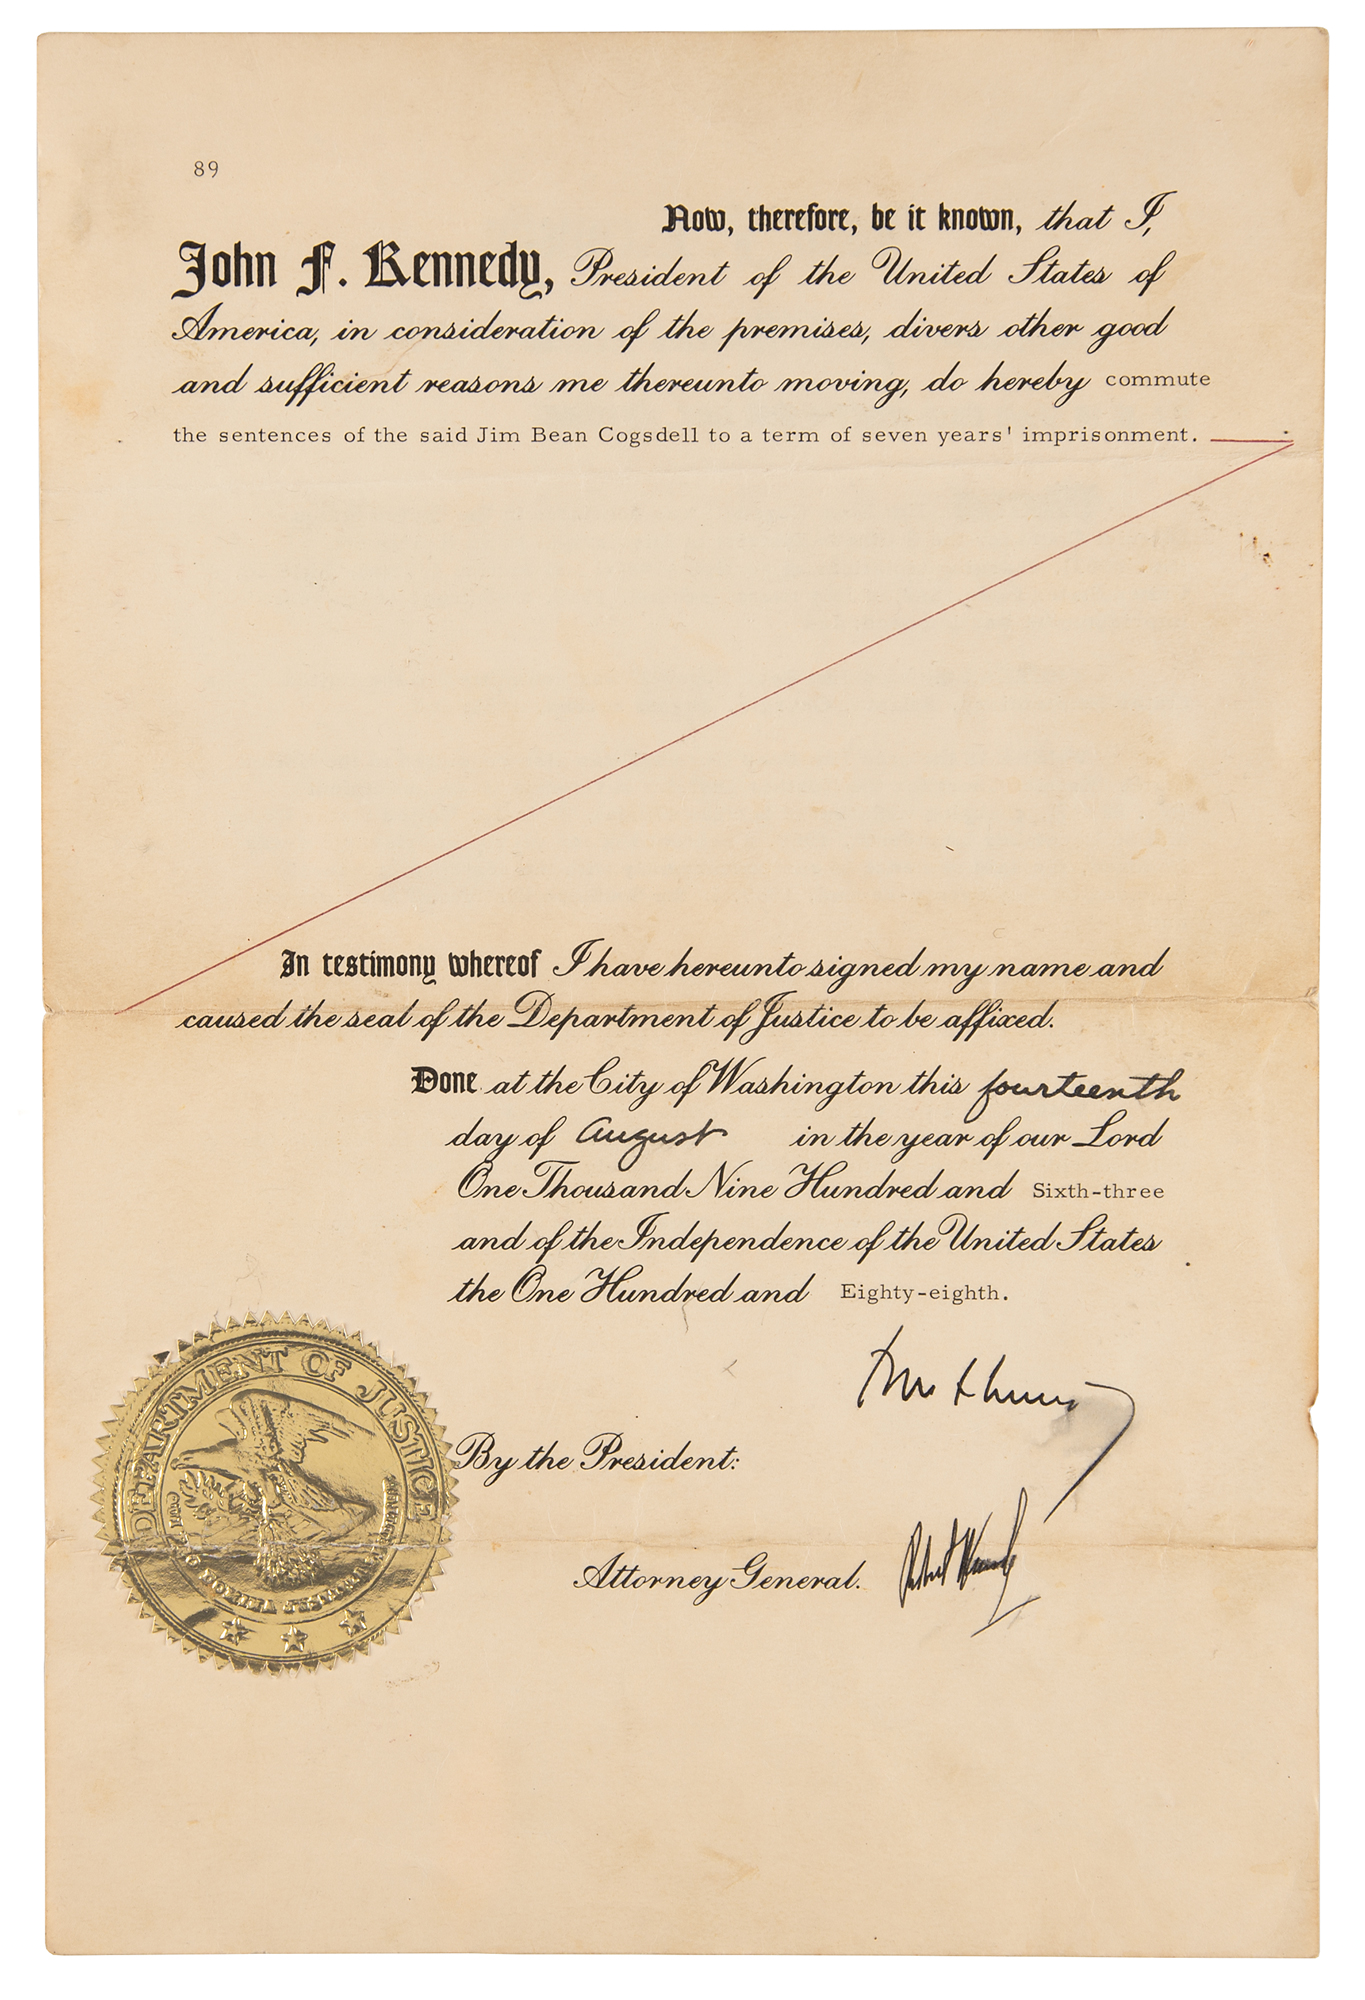 89
Now, therefore, be it known, that I,
John F. Kennedy, President of the United States of
America, in consideration of the premises, divers other good
and sufficient reasons me thereunto moving, do hereby commute
the sentences of the said Jim Bean Cogsdell to a term of seven years' imprisonment.
In testimony whereof I have hereunto signed my name and
caused the seal of the Department of Justice to be affixed.
Done at the City of Washington this fourteenth
day of August in the year of our Lord
One Thousand Nine Hundred and Sixth-three
and of the Independence of the United States
the One Hundred and Eighty-eighth.
DEPARTMENT OF JUSTICE
By the President:
Attorney General.